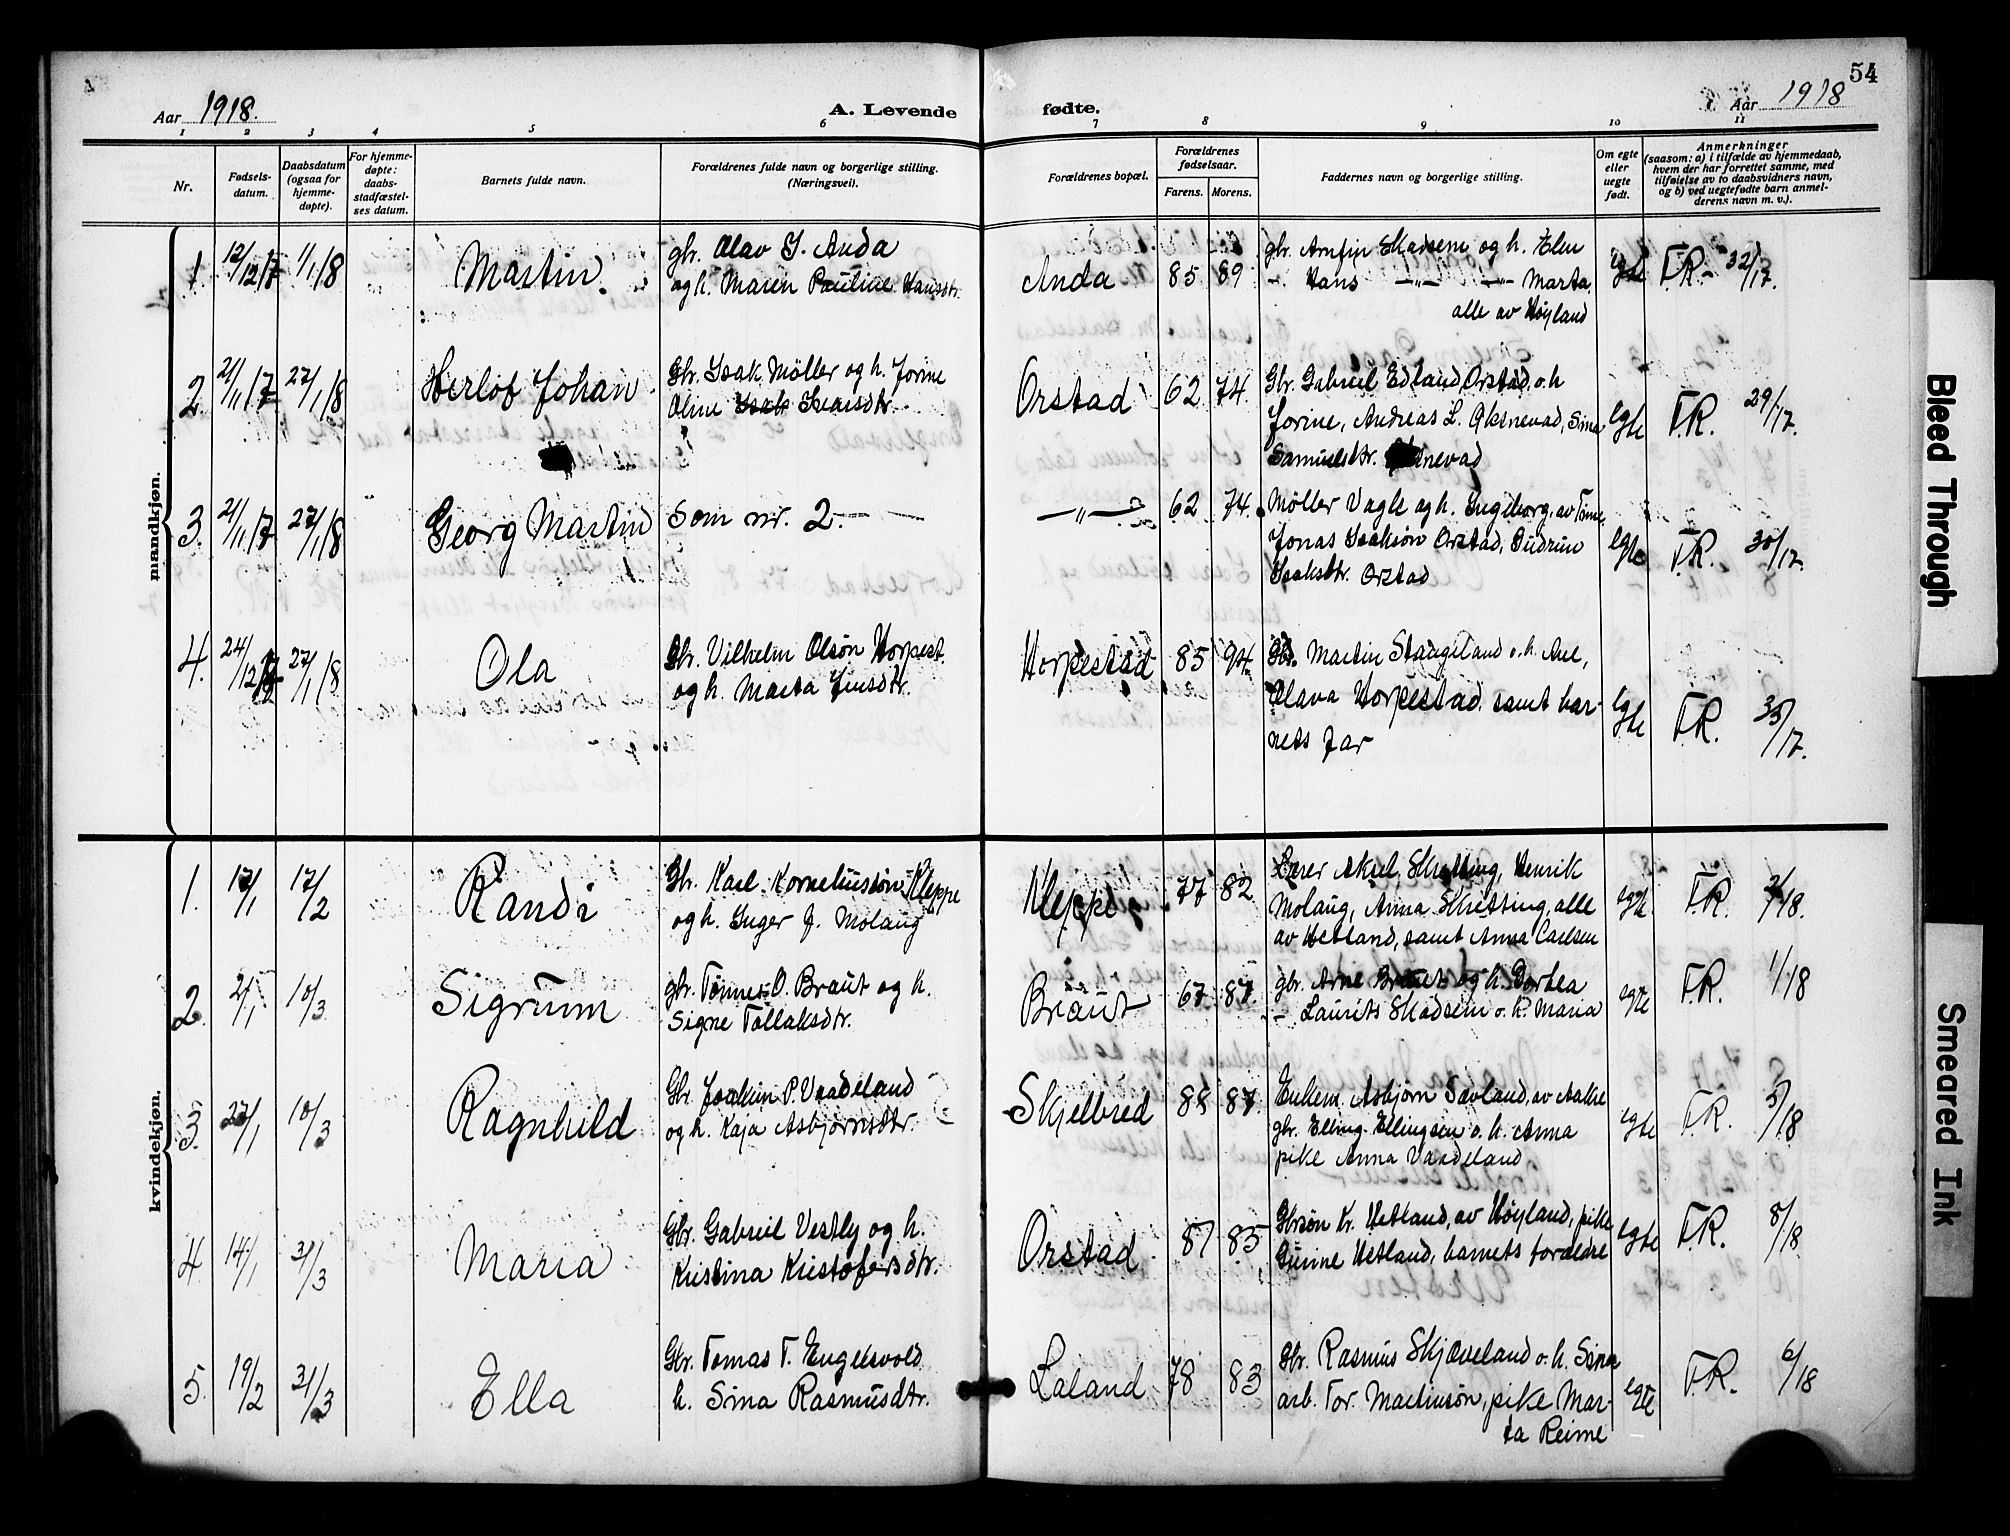 54
Aar 1918.
A. Levende fødte.
Aar 1918
1 2 3 4 5 6 7 8 9 10 11
Nr.
Fødsels-
datum.
Daabsdatum
(ogsaa for
hjemme-
døpte).
For hjemme-
døpte:
daabs-
stadfæstel-
ses datum.
Barnets fulde navn.
Forældrenes fulde navn og borgerlige stilling.
(Næringsvei).
Forældrenes bopæl.
Forældrenes
fødselsaar.
Farens. Morens.
Faddernes navn og borgerlige stilling.
Om egte
eller
uegte
født.
Anmerkninger
(saasom: a) i tilfælde av hjemmedaab,
hvem der har forrettet samme, med
tilføielse av to daabsvidners navn,
og b) ved uegtefødte barn anmel-
derens navn m. v.).
mandkjøn.
1. 12/12 17 1/1 18 Martin.
gbr. Olav S. Anda
og h. Maren Pauline Hansdtr.
Anda 85 89
gbr. Arnfin Skadsem og h. Elen
-. Hans -"- -"- Marta,
alle av Høyland
egte F.R. 32/17.
2. 21/11 17 27/1 18 Herlof Johan
Gbr. Isak Møller og h. Jorine
Oline Isak Ivarsdtr.
Orstad 62 74.
Gbr. Gabriel Edland, Orstad, o. h
Jorine, Andreas L. Øksnevad, Sina
Samuelsdtr. Øksnevad
egte F.R. 29/17.
3. 21/11 17 27/1 18 Georg Martin
Som nr. 2.
-"- 62 74.
Møller Vagle og h. Ingeborg, av Time,
Jonas Isaksøn Orstad, Gudrun
Isaksdtr. Orstad
egte F.R. 30/17.
4. 24/12 17 27/1 18 Ola
Gbr. Vilhelm Olsøn Horpest.
og h. Marta Jensdtr.
Horpestad 85 94.
Gbr. Martin Stangeland o. h. Ane,
Olava Horpestad, samt bar-
nets far
egte F.R. 35/17.
kvindekjøn.
1. 17/1 17/2 Randi
Gbr. Karl Korneliussøn Kleppe
og h. Inger J. Molaug
Kleppe 77 82
Lærer Aksel Skretting, Henrik
Molaug, Anna Skretting, alle
av Hetland, samt Anna Carlsen
egte. F.R. 2/18.
2. 2/1 10/3 Sigrunn
gbr. Tønnes O. Braut og h.
Signe Tollaksdtr.
Braut 67 87.
gbr. Arne Braut og h. Dortea
- Laurits Skadsem o. h. Maria
egte F.R. 1/18
3. 27/1 10/3 Ragnhild
Gbr. Joakim P. Vaadeland
og h. Kaja Asbjørnsdtr.
Skjelbred 88 87
Enkem. Asbjørn Sævland, av Aakre
gbr. Elling Ellingsen o. h. Anna
pike Anna Vaadeland
egte F.R. 5/18
4. 14/1 31/3 Maria
Gbr. Gabriel Vestly og h.
Kristina Kristofersdtr.
Orstad 87 85
Gbrsøn Kr. Hetland, av Høyland, pike
Gunne Hetland, barnets forældre
egte F.R. 8/18
5. 19/2 31/3 Ella
Gbr. Tomas T. Engelsvold
h. Sina Rasmusdtr.
Laland 78 83
Gbr. Rasmus Skjæveland o. h. Sina
arb. Tor. Martinsøn, pike Mar-
ta Reime
egte F.R. 6/18
Bleed Through
Smeared Ink